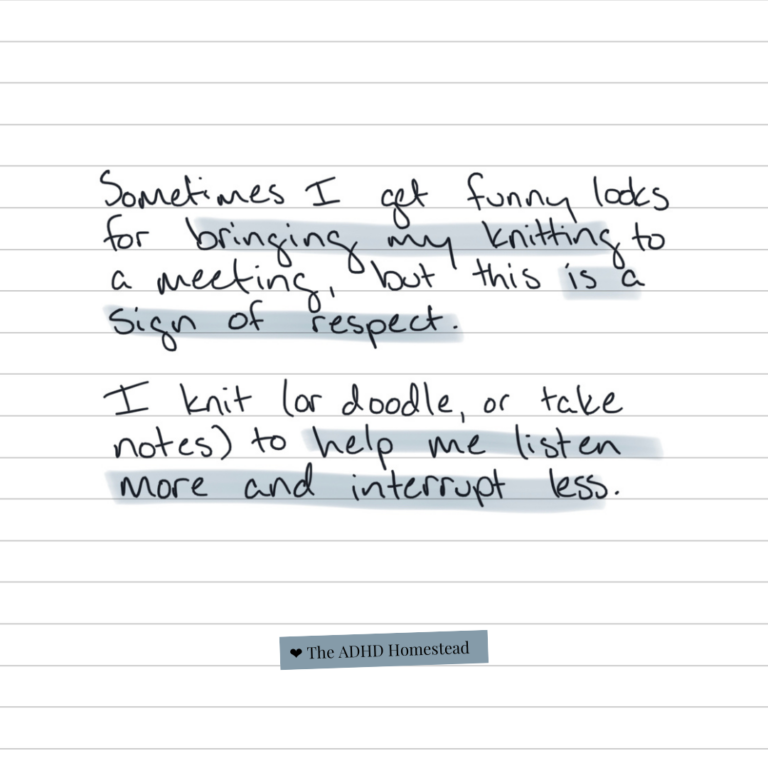 Sometimes I get funny looks
for bringing my knitting to
a meeting, but this is a
sign of respect.
I knit (or doodle, or take
notes) to help me listen
more and interrupt less.
❤ The ADHD Homestead